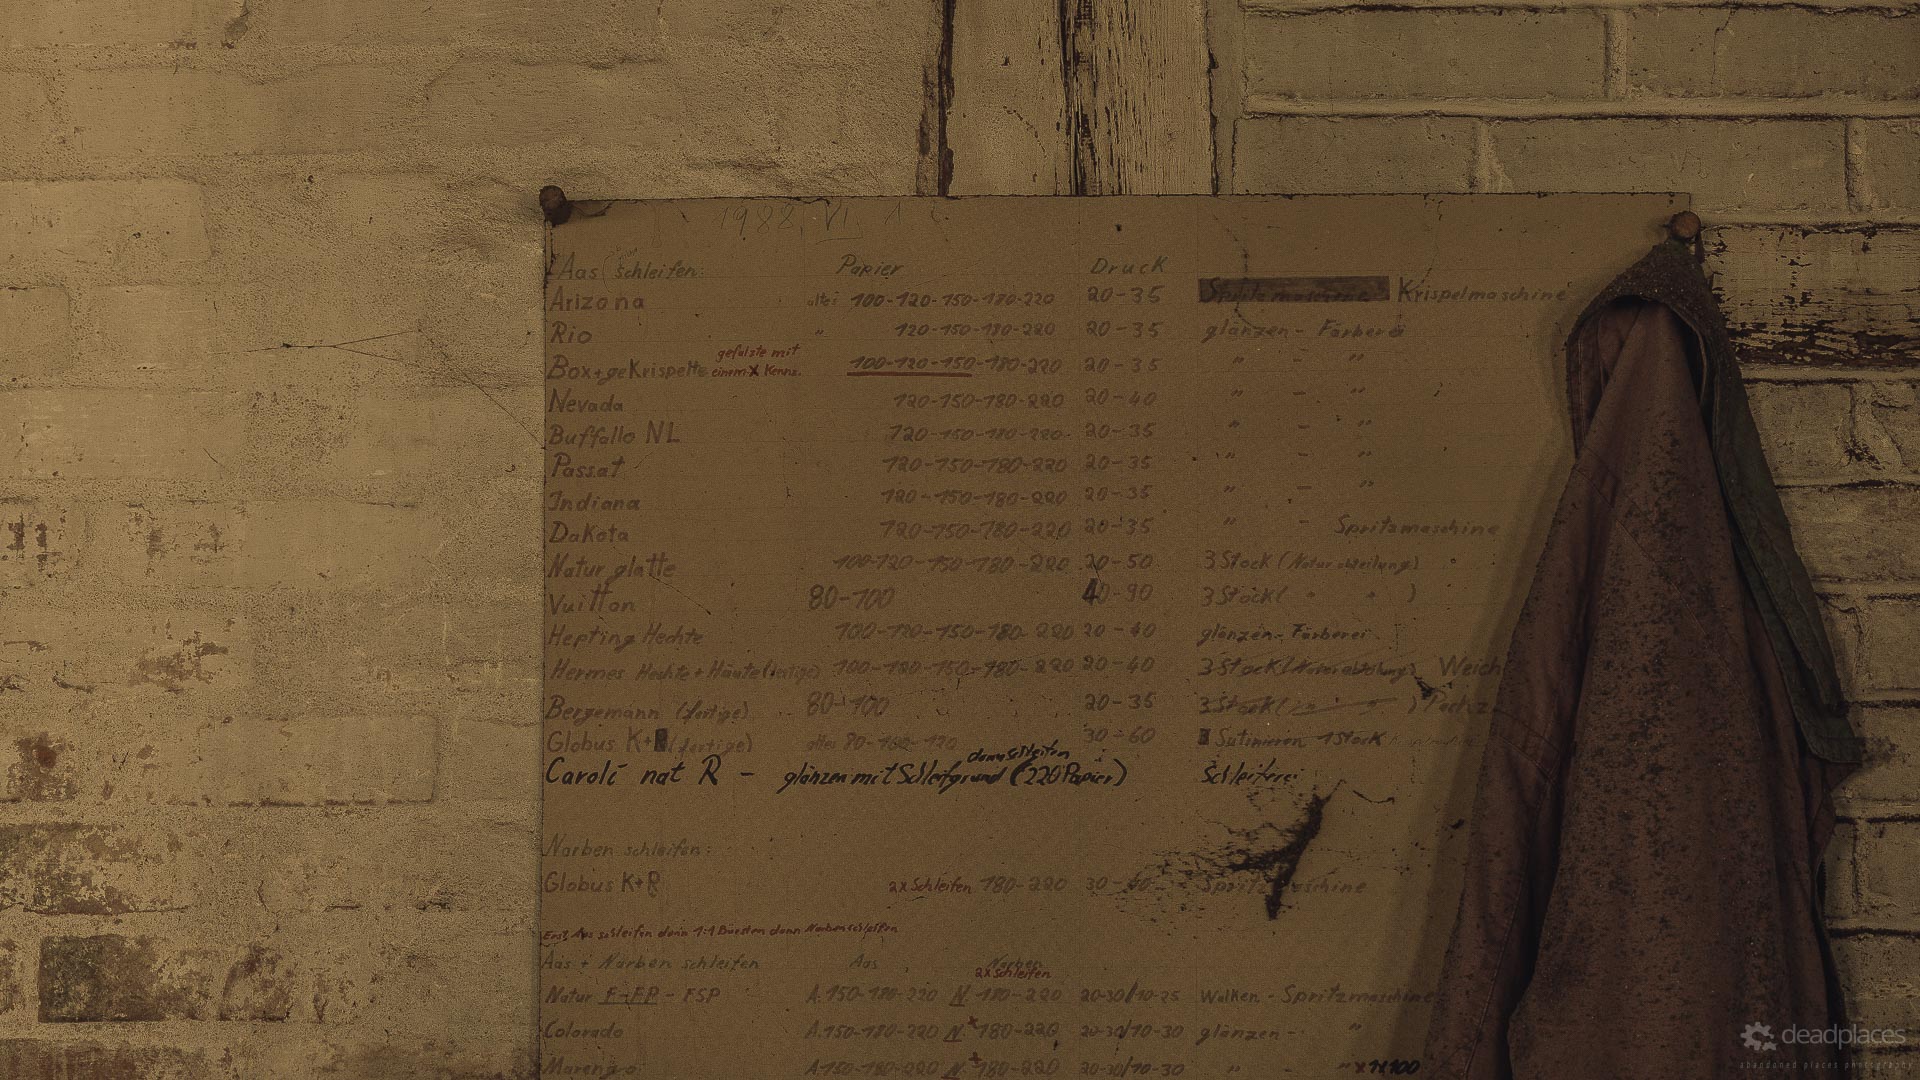 1988 VI
Aas schleifen: Papier Druck
Arizona 100-120-150-180-220 20-35 Krispelmaschine
Rio " 120-150-180-220 20-35 glänzen - Färberei
gefalste mit
Box+geKrispelte einem X Kennz. 100-120-150-180-220 20-35 " - "
Nevada 120-150-180-220 20-40 " - "
Buffallo NL 120-150-180-220 20-35 " - "
Passat 120-150-180-220 20-35 " - "
Indiana 120-150-180-220 20-35 " - "
Dakota 120-150-180-220 20-35 " - Spritzmaschine
Natur glatte 100-120-150-180-220 20-50 3 Stock (Naturabteilung)
Vuitton 80-100 40-90 3 Stock ( " " )
Hepting Hechte 100-120-150-180-220 20-40 glänzen - Färberei
Hermes Hechte + Häute (fertige) 100-120-150-180-220 20-40 3 Stock (Naturabteilung) Weich
Bergemann (fertige) 80-100 20-35 3 Stock (
Globus K+ (fertige) 80-100-120 30-60 Satinieren 1 Stock
dann schleifen
Caroli nat R - glänzen mit Schleifgrund (220 Papier) Schleiferei
Narben schleifen:
Globus K+R 2x Schleifen 180-220 30-40 Spritzmaschine
Erst Aas schleifen dann 1:1 Bürsten dann Narbenschleifen
Aas + Narben schleifen Aas Narben
2x Schleifen
Natur F-FP - FSP A.150-180-220 N 180-220 20-30/10-25 Walken - Spritzmaschine
Colorado A.150-180-220 N x 180-220 20-30/10-30 glänzen - "
Marengo A.150-180-220 N x 180-220 20-30/10-30 " - "
deadplaces
abandoned places photography